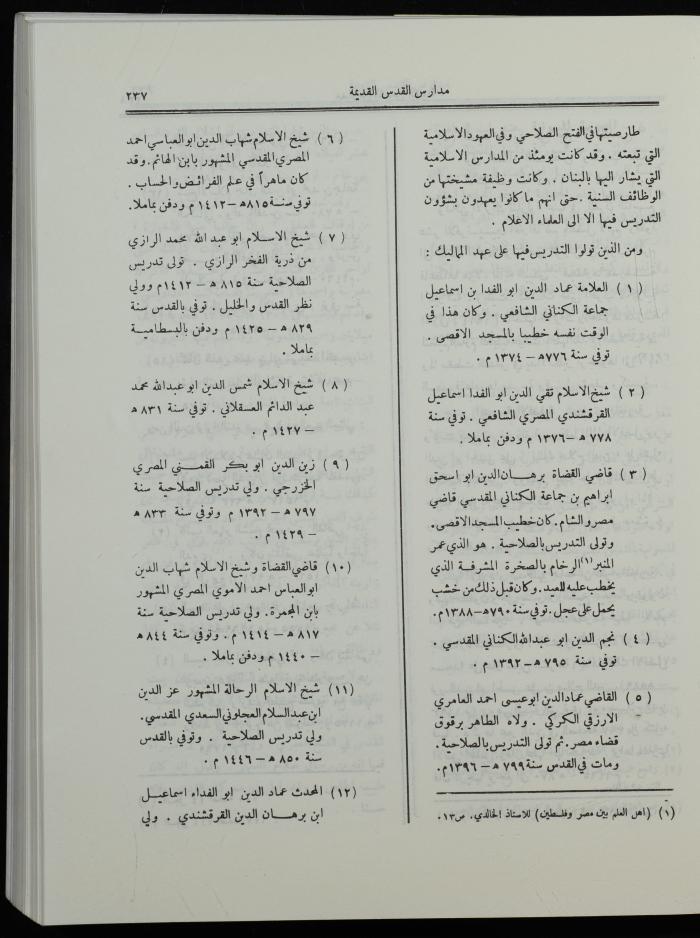 مدارس القدس القديمة
٢٣٧
طار صيتها في الفتح الصلاحي وفي العهود الاسلامية
التي تبعته . وقد كانت يومئذ من المدارس الاسلامية
التي يشار اليها بالبنان . وكانت وظيفة مشيختها من
الوظائف السنية . حتى انهم ما كانوا يعهدون بشؤون
التدريس فيها الا الى العلماء الاعلام .
ومن الذين تولوا التدريس فيها على عهد المماليك :
( ١ ) العلامة عماد الدين ابو الفدا بن اسماعيل
جماعة الكناني الشافعي . وكان هذا في
الوقت نفسه خطيبا بالمسجد الاقصى .
توفي سنة ٧٧٦ ه – ١٣٧٤ م .
( ٢ ) شيخ الاسلام تقي الدين ابو الفدا اسماعيل
القرقشندي المصري الشافعي . توفي سنة
٧٧٨ ه – ١٣٧٦ م ودفن بماملا .
( ٣ ) قاضي القضاة برهان الدين ابو اسحق
ابراهيم بن جماعة الكناني المقدسي قاضي
مصر والشام . كان خطيب المسجد الاقصى .
وتولى التدريس بالصلاحية . هو الذي عمر
المنبر (١) الرخام بالصخرة المشرفة الذي
يخطب عليه للعيد . وكان قبل ذلك من خشب
يحمل على عجل . توفي سنة ٧٩٠ ه – ١٣٨٨ م .
( ٤ ) نجم الدين ابو عبدالله الكناني المقدسي .
توفي سنة ٧٩٥ ه – ١٣٩٢ م .
( ٥ ) القاضي عماد الدين ابو عيسى احمد العامري
الازرقي الكركي . ولاه الظاهر برقوق
قضاء مصر . ثم تولى التدريس بالصلاحية .
ومات في القدس سنة ٧٩٩ ه – ١٣٩٦ م .
(١) (اهل العلم بين مصر وفلسطين) للاستاذ الخالدي. ص ١٣ .
( ٦ ) شيخ الاسلام شهاب الدين ابو العباسي احمد
المصري المقدسي المشهور بابن الهائم . وقد
كان ماهراً في علم الفرائض والحساب .
توفي سنة ٨١٥ ه – ١٤١٢ م ودفن بماملا .
( ٧ ) شيخ الاسلام ابو عبد الله محمد الرازي
من ذرية الفخر الرازي . تولى تدريس
الصلاحية سنة ٨١٥ ه – ١٤١٢ م وولي
نظر القدس والخليل . توفي بالقدس سنة
٨٢٩ ه – ١٤٢٥ م ودفن بالبسطامية
بماملا .
( ٨ ) شيخ الاسلام شمس الدين ابو عبدالله محمد
عبد الدائم العسقلاني . توفي سنة ٨٣١ ه
– ١٤٢٧ م .
( ٩ ) زين الدين ابو بكر القمني المصري
الخزرجي . ولي تدريس الصلاحية سنة
٧٩٧ ه – ١٣٩٢ م وتوفي سنة ٨٣٣ ه
– ١٤٢٩ م .
(١٠) قاضي القضاة وشيخ الاسلام شهاب الدين
ابو العباس احمد الاموي المصري المشهور
بابن المجمرة . ولي تدريس الصلاحية سنة
٨١٧ ه – ١٤١٤ م . وتوفي سنة ٨٤٤ ه
– ١٤٤٠ م ودفن بماملا .
(١١) شيخ الاسلام الرحالة المشهور عز الدين
ابن عبد السلام العجلوني السعدي المقدسي .
ولي تدريس الصلاحية . وتوفي بالقدس
سنة ٨٥٠ ه – ١٤٤٦ م .
(١٢) المحدث عماد الدين ابو الفداء اسماعيل
ابن برهان الدين القرقشندي . ولي